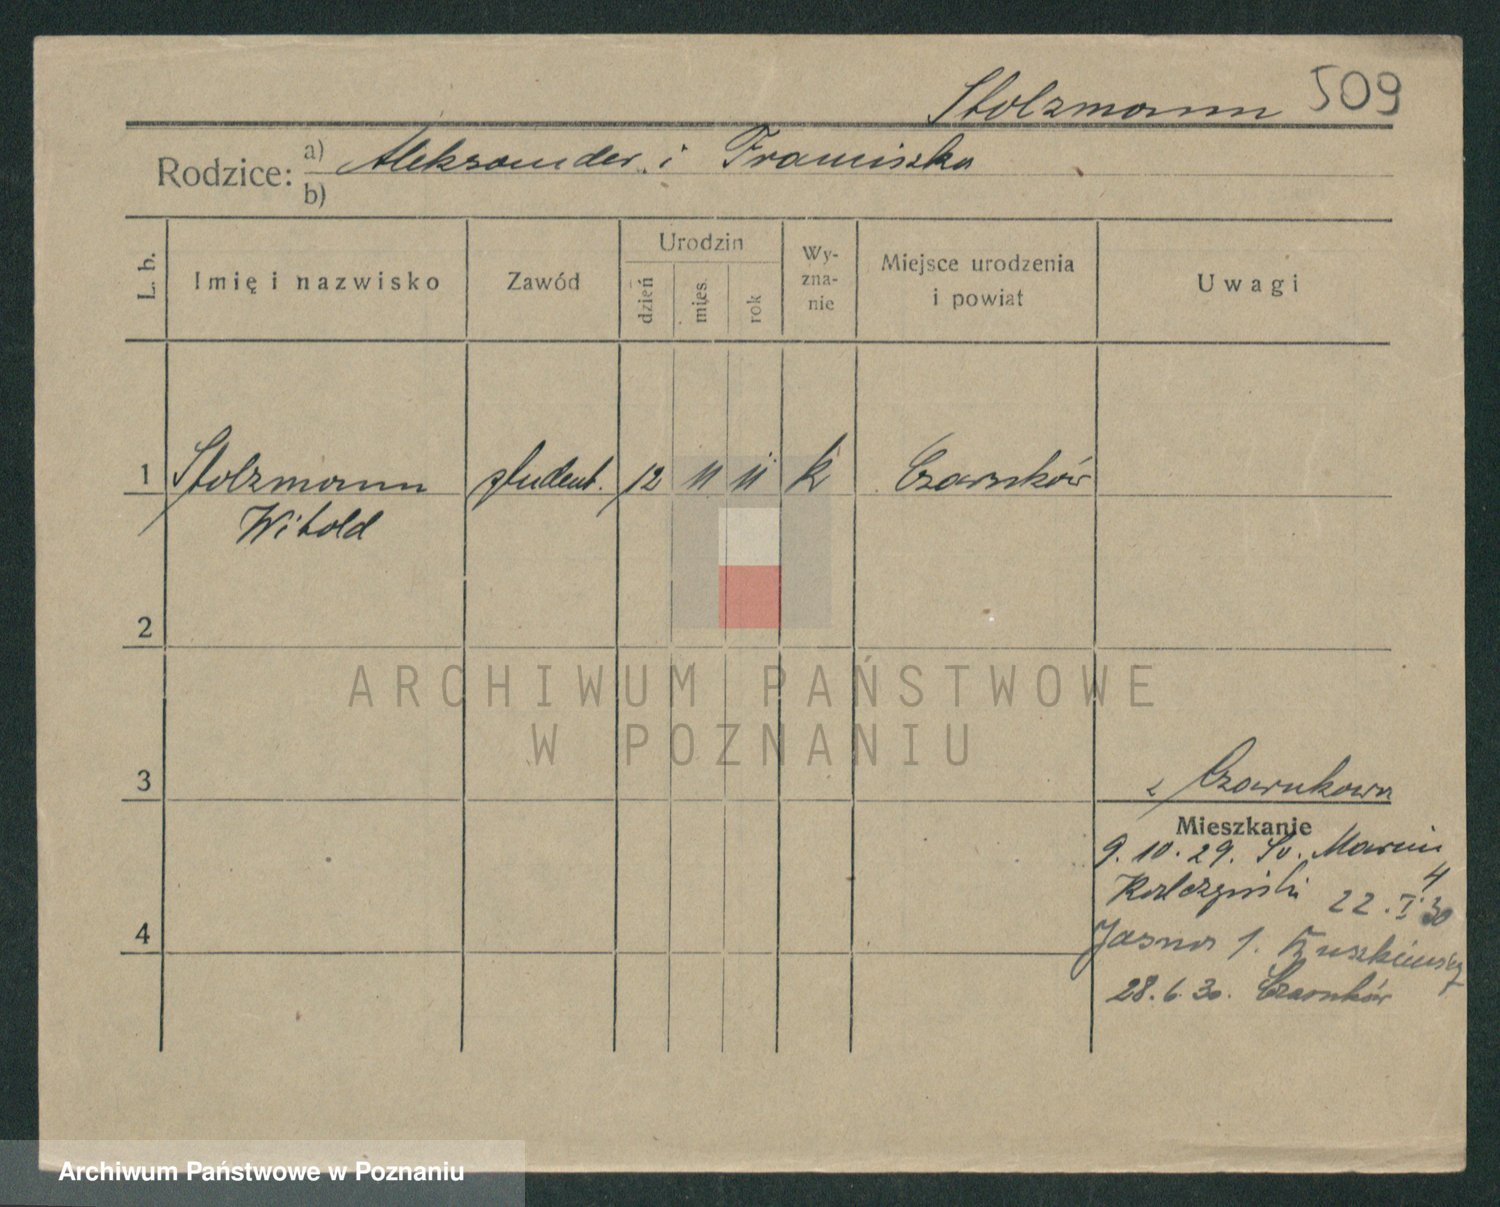 Stolzmann 509
Rodzice: a) Aleksander i Franciszka
b)
L. b.
Imię i nazwisko
Zawód
Urodzin
dzień
mies.
rok
Wy-
zna-
nie
Miejsce urodzenia
i powiat
Uwagi
1 Stolzmann student. 12 11 11 k Czarnków
Witold
2
ARCHIWUM PAŃSTWOWE
W POZNANIU
3
z Czarnkowa
Mieszkanie
9.10.29. Św. Marcin
4
22.I.30
4
Jasna 1.
28.6.30. Czarnków
Archiwum Państwowe w Poznaniu